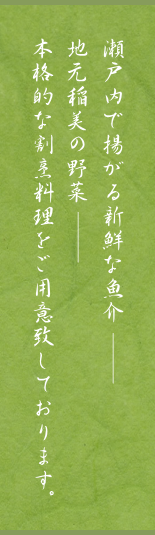 瀬戸内で揚がる新鮮な魚介――
地元稲美の野菜――
本格的な割烹料理をご用意致しております。